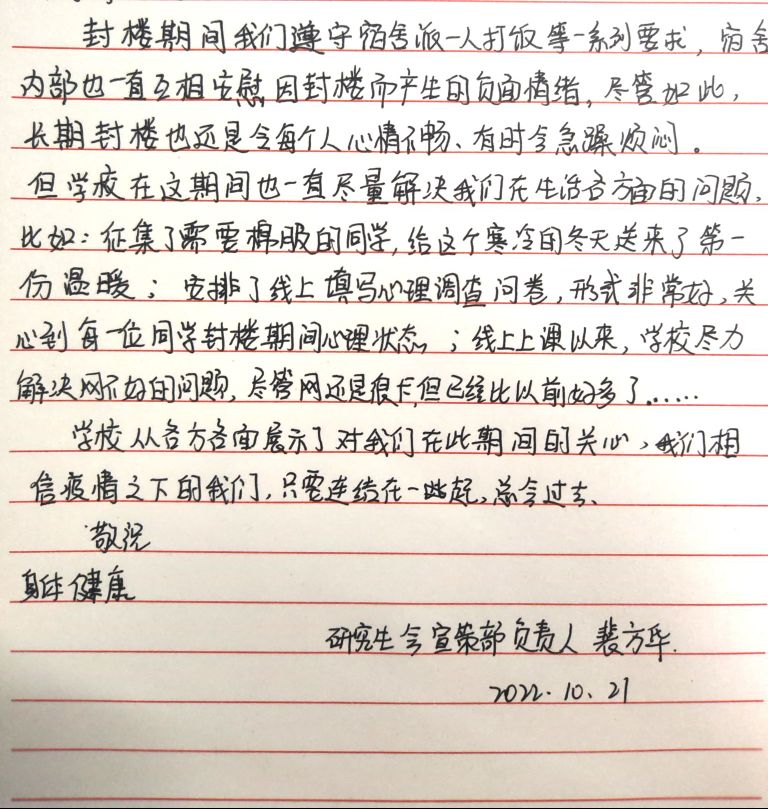 封楼期间我们遵守宿舍派一人打饭等一系列要求，宿舍
内部也一直互相安慰因封楼而产生的负面情绪，尽管如此，
长期封楼也还是令每个人心情不畅、有时令急躁烦闷。
但学校在这期间也一直尽量解决我们在生活各方面的问题，
比如：征集了需要棉服的同学，给这个寒冷的冬天送来了第一
份温暖；安排了线上填写心理调查问卷，形式非常好，关
心到每一位同学封楼期间心理状态；线上上课以来，学校尽力
解决网不好的问题，尽管网还是很卡，但已经比以前好多了……
学校从各方各面展示了对我们在此期间的关心，我们相
信疫情之下的我们，只要连结在一起，总会过去、
敬祝
身体健康
研究生会宣策部负责人 裴方华.
2022.10.21